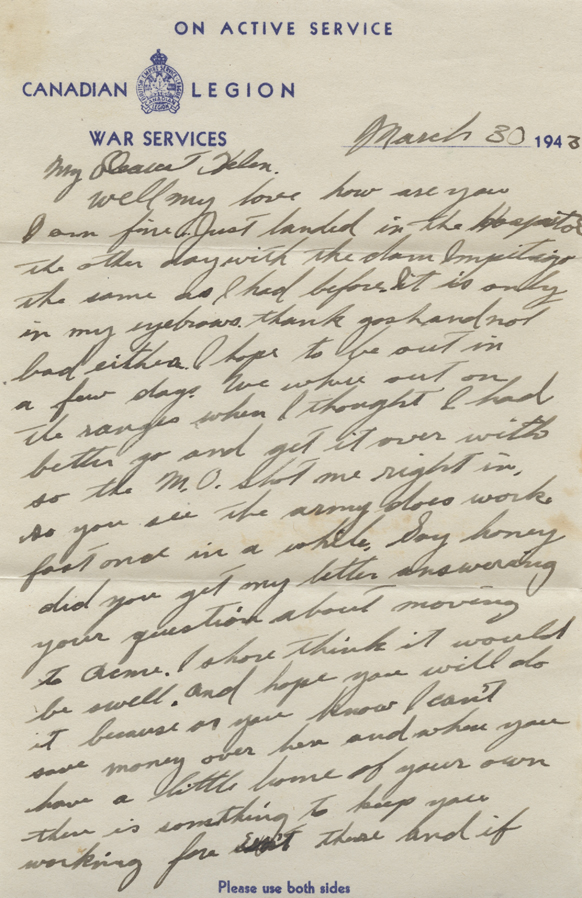 ON ACTIVE SERVICE
CANADIAN LEGION
WAR SERVICES
March 30 1943
My Dearest Helen.
Well my love how are you
I am fine. Just landed in the Hospital
the other day with the darn Impitigo
the same as I had before. It is only
in my eyebrows. thank gosh and not
bad either. I hope to be out in
a few days. We where out on
the ranges when I thought I had
better go and get it over with
so the M.O. shot me right in.
so you see the army does work
fast once in a while. Say honey
did you get my letter answering
your question about moving
to Acme. I shore think it would
be swell. and hope you will do
it because as you know I can't
save money over here and when you
have a little home of your own
there is something to keep you
working fore isn't there and if
Please use both sides